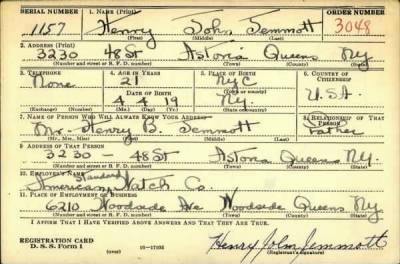 SERIAL NUMBER 1. NAME (Print) ORDER NUMBER
1157 Henry John Jemmott 3048
(First) (Middle) (Last)
2. ADDRESS (Print)
3230 48 St Astoria Queens NY
(Number and street or R. F. D. number) (Town) (County) (State)
3. TELEPHONE 4. AGE IN YEARS 5. PLACE OF BIRTH 6. COUNTRY OF CITIZENSHIP
None 21 NYC U.S.A.
DATE OF BIRTH (Town or county)
4 4 19 NY.
(Exchange) (Number) (Mo.) (Day) (Yr.) (State or country)
7. NAME OF PERSON WHO WILL ALWAYS KNOW YOUR ADDRESS 8. RELATIONSHIP OF THAT PERSON
Mr- Henry B. Jemmott Father
(Mr., Mrs., Miss) (First) (Middle) (Last)
9. ADDRESS OF THAT PERSON
3230 - 48 St Astoria Queens NY.
(Number and street or R. F. D. number) (Town) (County) (State)
10. EMPLOYER'S NAME
Standard
American Watch Co.
11. PLACE OF EMPLOYMENT OR BUSINESS
6210 Woodside Ave Woodside Queens NY
(Number and street or R. F. D. number) (Town) (County) (State)
I AFFIRM THAT I HAVE VERIFIED ABOVE ANSWERS AND THAT THEY ARE TRUE.
REGISTRATION CARD
D. S. S. Form 1 (over) 16-17105 Henry John Jemmott
(Registrant's signature)